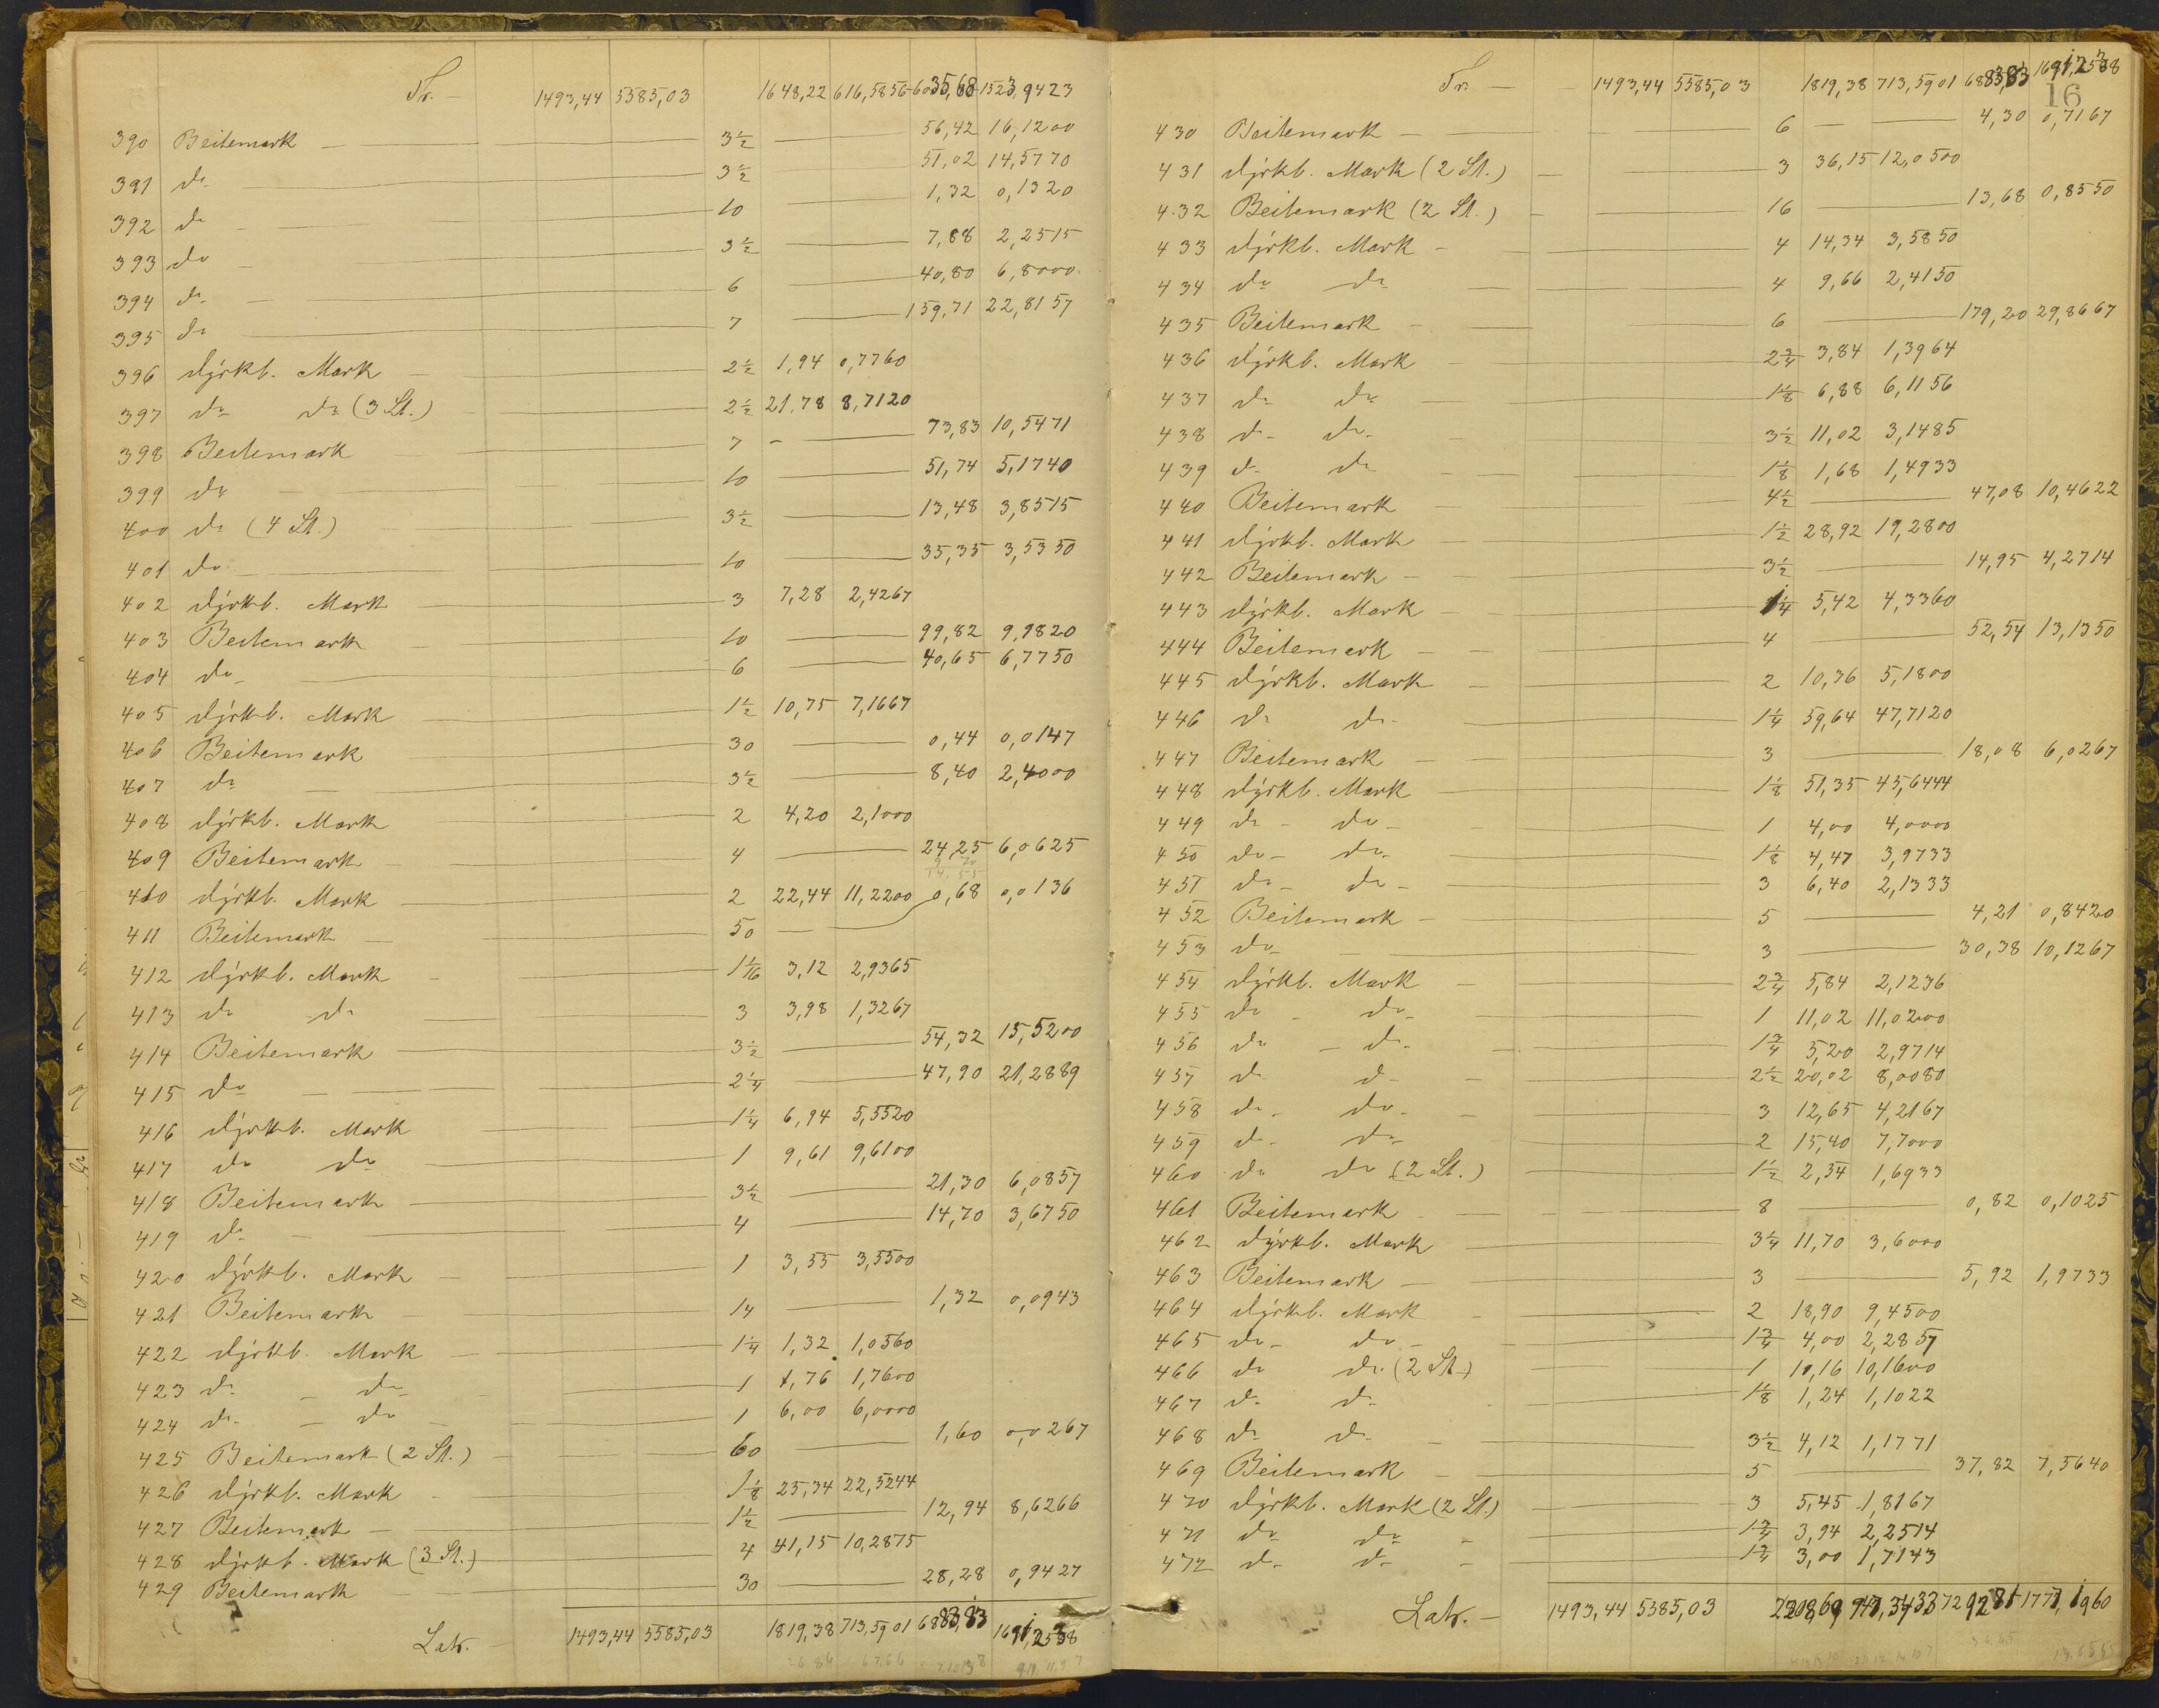 Tr. 1493,44 5585,03 1648,22 616,5856 6035,68 1523,9423
390 Beitemark 3½ 56,42 16,1200
391 do 3½ 51,02 14,5770
392 do 10 1,32 0,1320
393 do 3½ 7,88 2,2515
394 do 6 40,80 6,8000
395 do 7 159,71 22,8157
396 dyrkb. Mark 2½ 1,94 0,7760
397 do do (3 St.) 2½ 21,78 8,7120
398 Beitemark 7 73,83 10,5471
399 do 10 51,74 5,1740
400 do (4 St.) 3½ 13,48 3,8515
401 do 10 35,35 3,5350
402 dyrkb. Mark 3 7,28 2,4267
403 Beitemark 10 99,82 9,9820
404 do 6 40,65 6,7750
405 dyrkb. Mark 1½ 10,75 7,1667
406 Beitemark 30 0,44 0,0147
407 do 3½ 8,40 2,4000
408 dyrkb. Mark 2 4,20 2,1000
409 Beitemark 4 24,25 6,0625
410 dyrkb. Mark 2 22,44 11,2200
411 Beitemark 50 0,68 0,0136
412 dyrkb. Mark 1 1/16 3,12 2,9365
413 do do 3 3,98 1,3267
414 Beitemark 3½ 54,32 15,5200
415 do 2¼ 47,90 21,2889
416 dyrkb. Mark 1¼ 6,94 5,5520
417 do do 1 9,61 9,6100
418 Beitemark 3½ 21,30 6,0857
419 do 4 14,70 3,6750
420 dyrkb. Mark 1 3,55 3,5500
421 Beitemark 14 1,32 0,0943
422 dyrkb. Mark 1¼ 1,32 1,0560
423 do do 1 1,76 1,7600
424 do do 1 6,00 6,0000
425 Beitemark (2 St.) 60 1,60 0,0267
426 dyrkb. Mark 1⅛ 25,34 22,5244
427 Beitemark 1½ 12,94 8,6266
428 dyrkb. Mark (3 St.) 4 41,15 10,2875
429 Beitemark 30 28,28 0,9427
Latr. 1493,44 5585,03 1819,38 713,5901 6883,83
Tr. 1493,44 5585,03 1819,38 713,5901 6883,83
16
430 Beitemark 6 4,30 0,7167
431 dyrkb. Mark (2 St.) 3 36,15 12,0500
432 Beitemark (2 St.) 16 13,68 0,8550
433 dyrkb. Mark 4 14,34 3,5850
434 do do 4 9,66 2,4150
435 Beitemark 6 179,20 29,8667
436 dyrkb. Mark 2¾ 3,84 1,3964
437 do do 1⅛ 6,88 6,1156
438 do do 3½ 11,02 3,1485
439 do do 1⅛ 1,68 1,4933
440 Beitemark 4½ 47,08 10,4622
441 dyrkb. Mark 1½ 28,92 19,2800
442 Beitemark 3½ 14,95 4,2714
443 dyrkb. Mark 1¼ 5,42 4,3360
444 Beitemark 4 52,54 13,1350
445 dyrkb. Mark 2 10,36 5,1800
446 do do 1¼ 59,64 47,7120
447 Beitemark 3 18,08 6,0267
448 dyrkb. Mark 1⅛ 51,35 45,6444
449 do do 1 4,00 4,0000
450 do do 1⅛ 4,47 3,9733
451 do do 3 6,40 2,1333
452 Beitemark 5 4,21 0,8420
453 do 3 30,38 10,1267
454 dyrkb. Mark 2¾ 5,84 2,1236
455 do do 1 11,02 11,0200
456 do do 1¾ 5,20 2,9714
457 do do 2½ 20,02 8,0080
458 do do 3 12,65 4,2167
459 do do 2 15,40 7,7000
460 do do (2 St.) 1½ 2,54 1,6933
461 Beitemark 8 0,82 0,1025
462 dyrkb. Mark 3¼ 11,70 3,6000
463 Beitemark 3 5,92 1,9733
464 dyrkb. Mark 2 18,90 9,4500
465 do do 1¾ 4,00 2,2857
466 do do (2 St.) 1 10,16 10,1600
467 do do 1⅛ 1,24 1,1022
468 do do 3½ 4,12 1,1771
469 Beitemark 5 37,82 7,5640
470 dyrkb. Mark (2 St.) 3 5,45 1,8167
471 do do 1¾ 3,94 2,2514
472 do do 1¾ 3,00 1,7143
Latr. 1493,44 5585,03